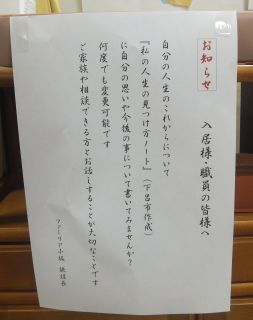 お知らせ
入居様・職員の皆様へ
自分の人生のこれからについて
『私の人生の見つけ方ノート』（下呂市作成）
に自分の思いや今後の事について書いてみませんか？
何度でも変更可能です
ご家族や相談できる方とお話しすることが大切なことです
ファミリア小坂 施設長